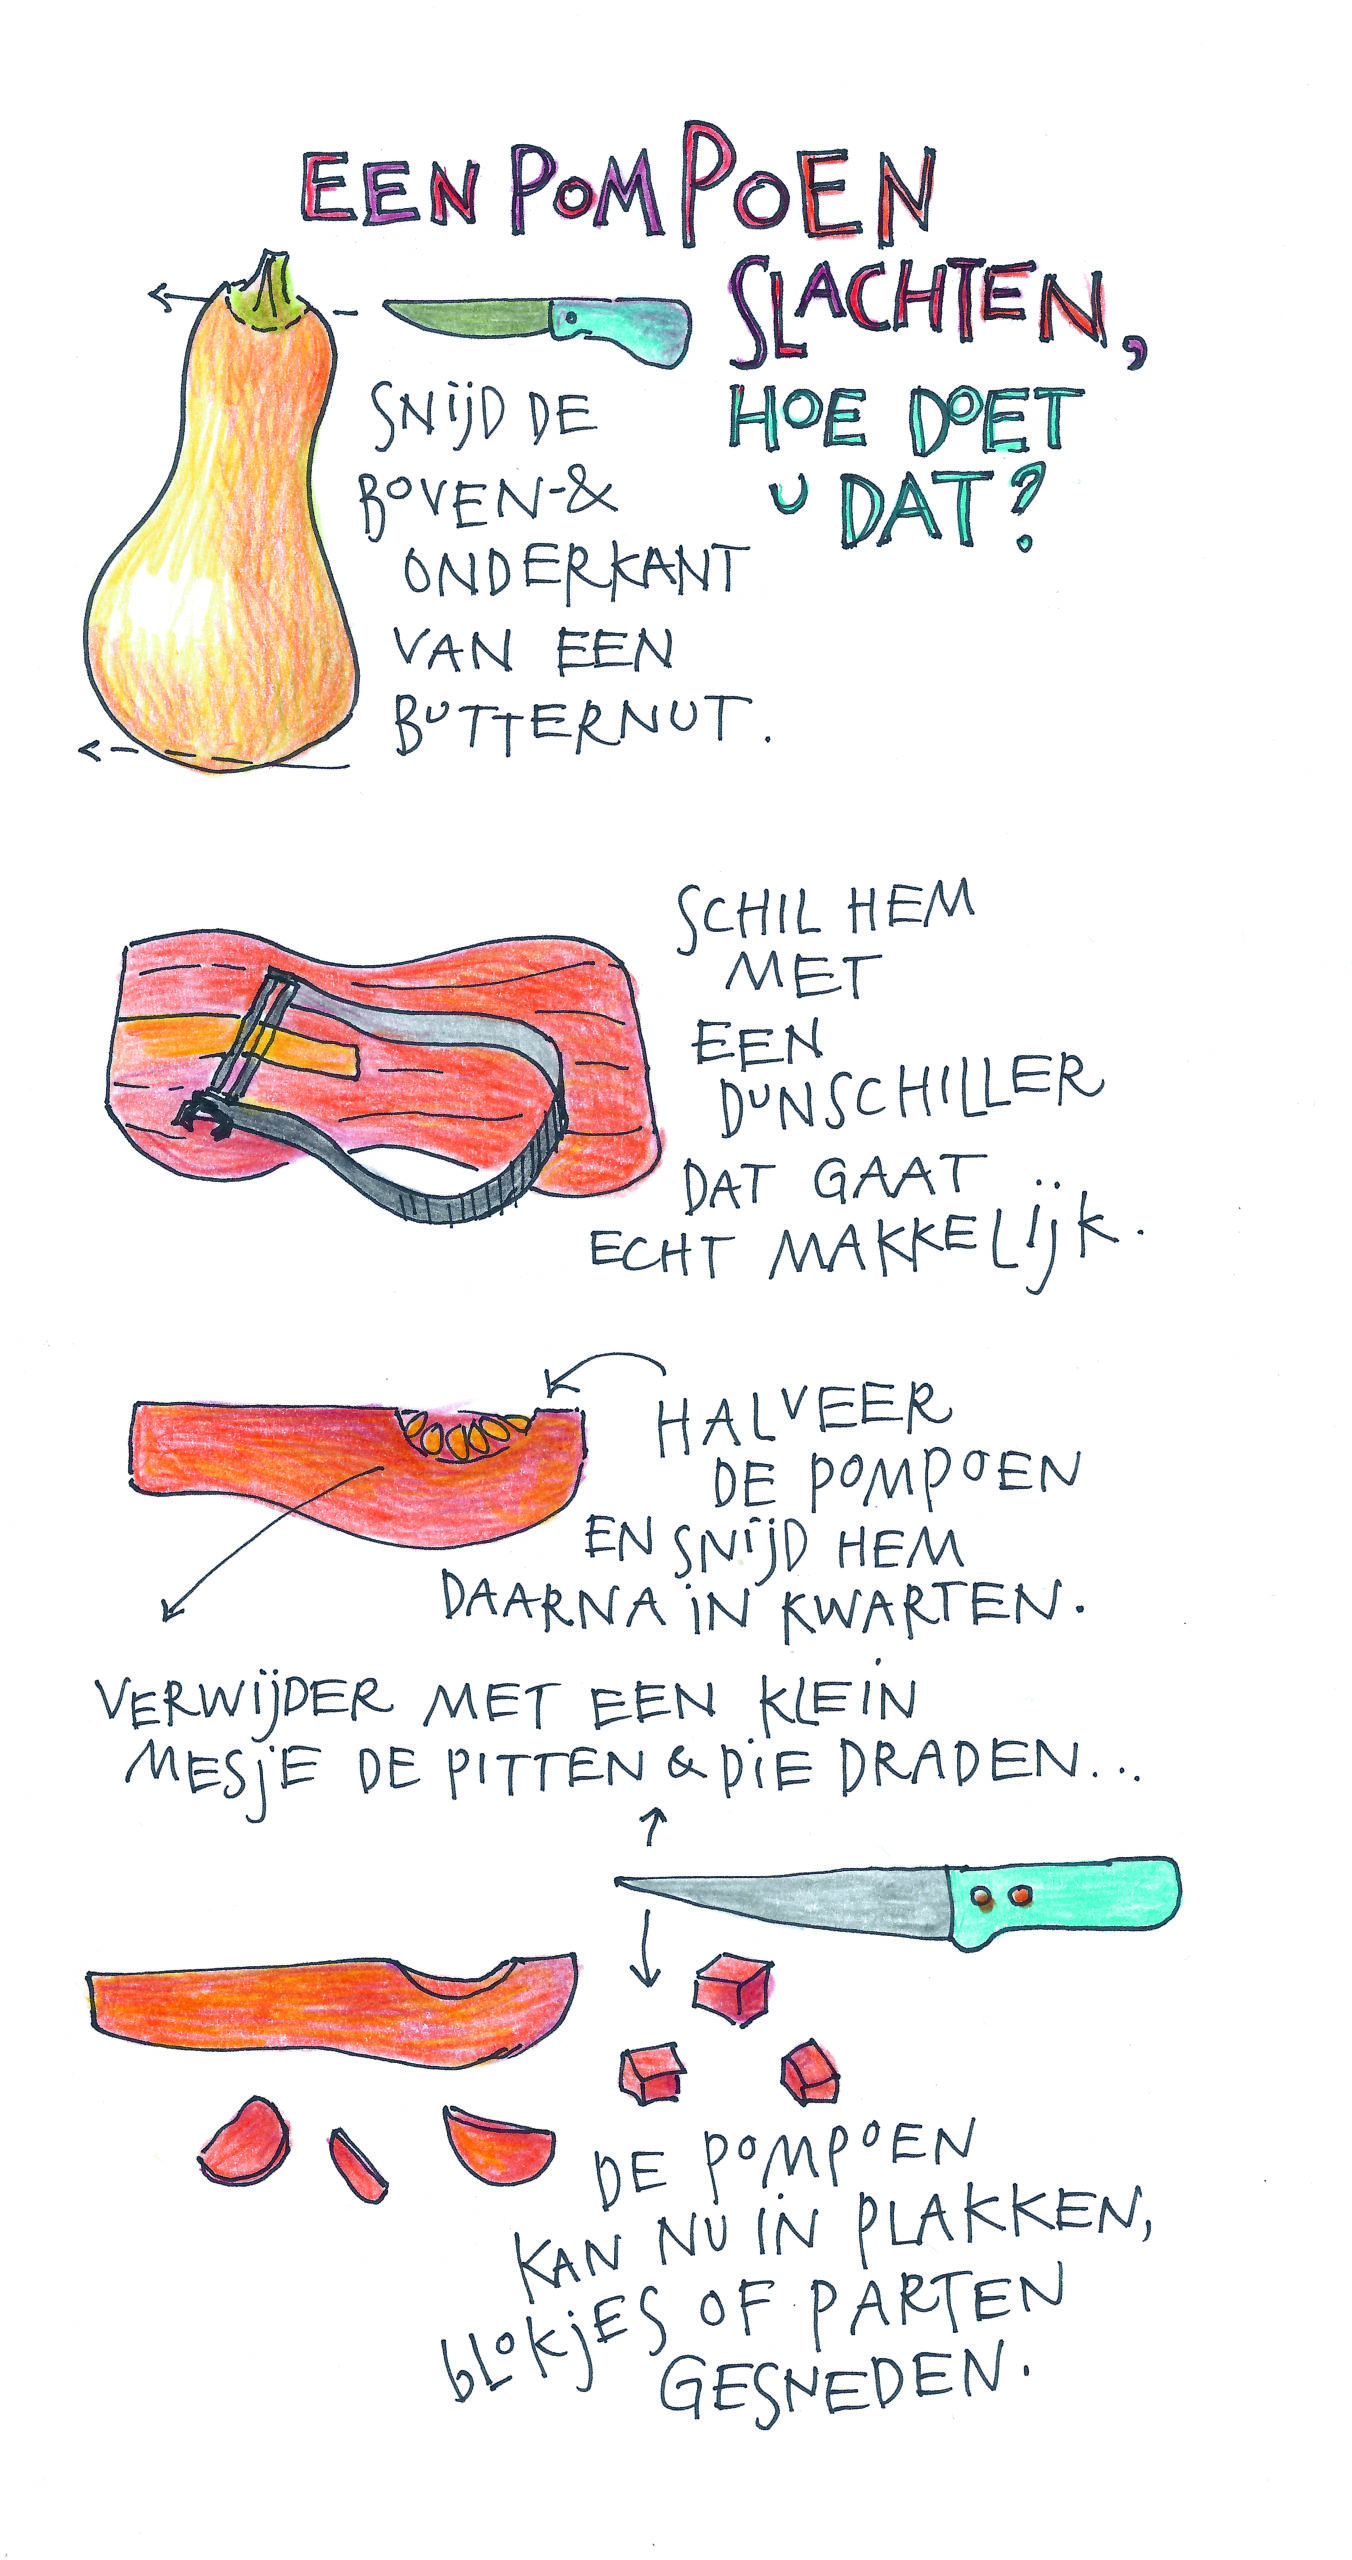 EEN POMPOEN
SLACHTEN,
HOE DOET
U DAT?
SNIJD DE
BOVEN-&
ONDERKANT
VAN EEN
BUTTERNUT.
SCHIL HEM
MET
EEN
DUNSCHILLER
DAT GAAT
ECHT MAKKELIJK.
HALVEER
DE POMPOEN
EN SNIJD HEM
DAARNA IN KWARTEN.
VERWIJDER MET EEN KLEIN
MESJE DE PITTEN & DIE DRADEN...
DE POMPOEN
KAN NU IN PLAKKEN,
BLOKJES OF PARTEN
GESNEDEN.